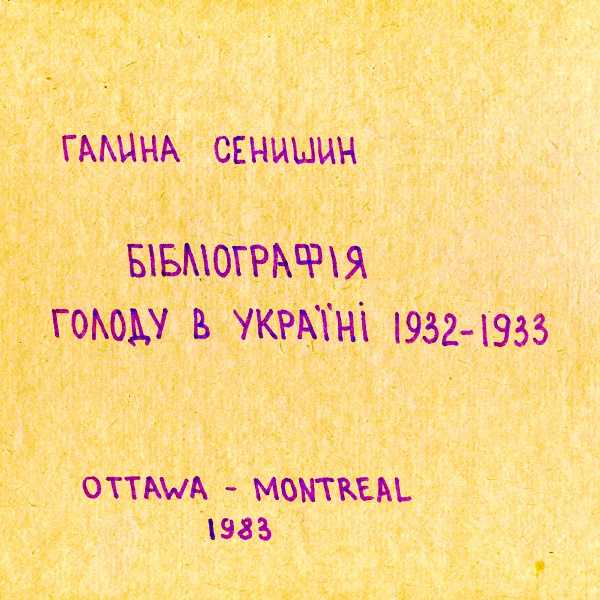 ГАЛИНА СЕНИШИН
БІБЛІОГРАФІЯ
ГОЛОДУ В УКРАЇНІ 1932-1933
OTTAWA - MONTREAL
1983